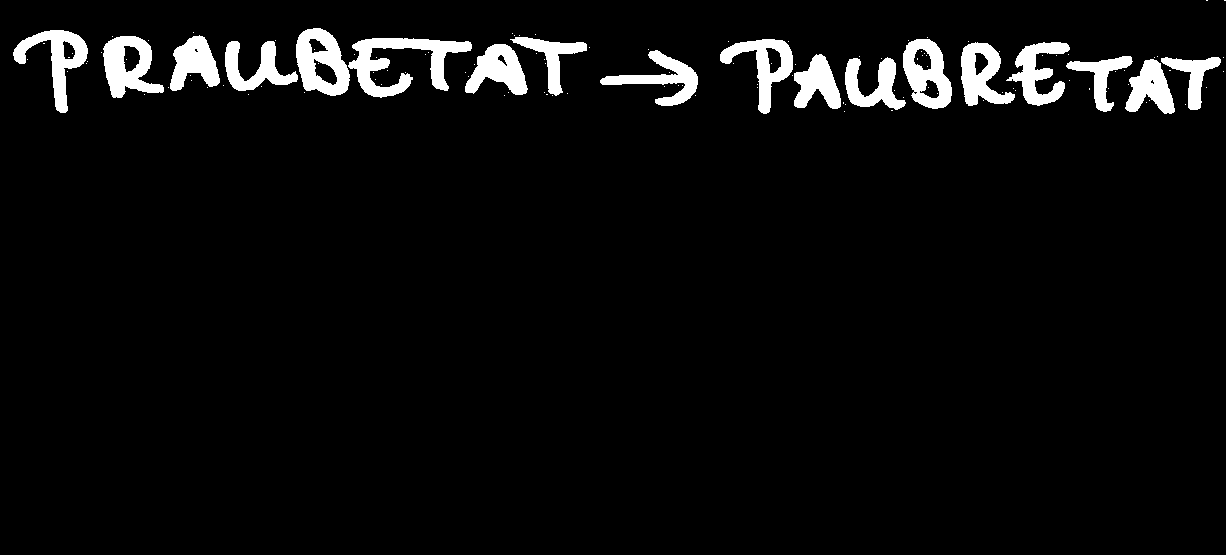 PRAUBETAT → PAUBRETAT